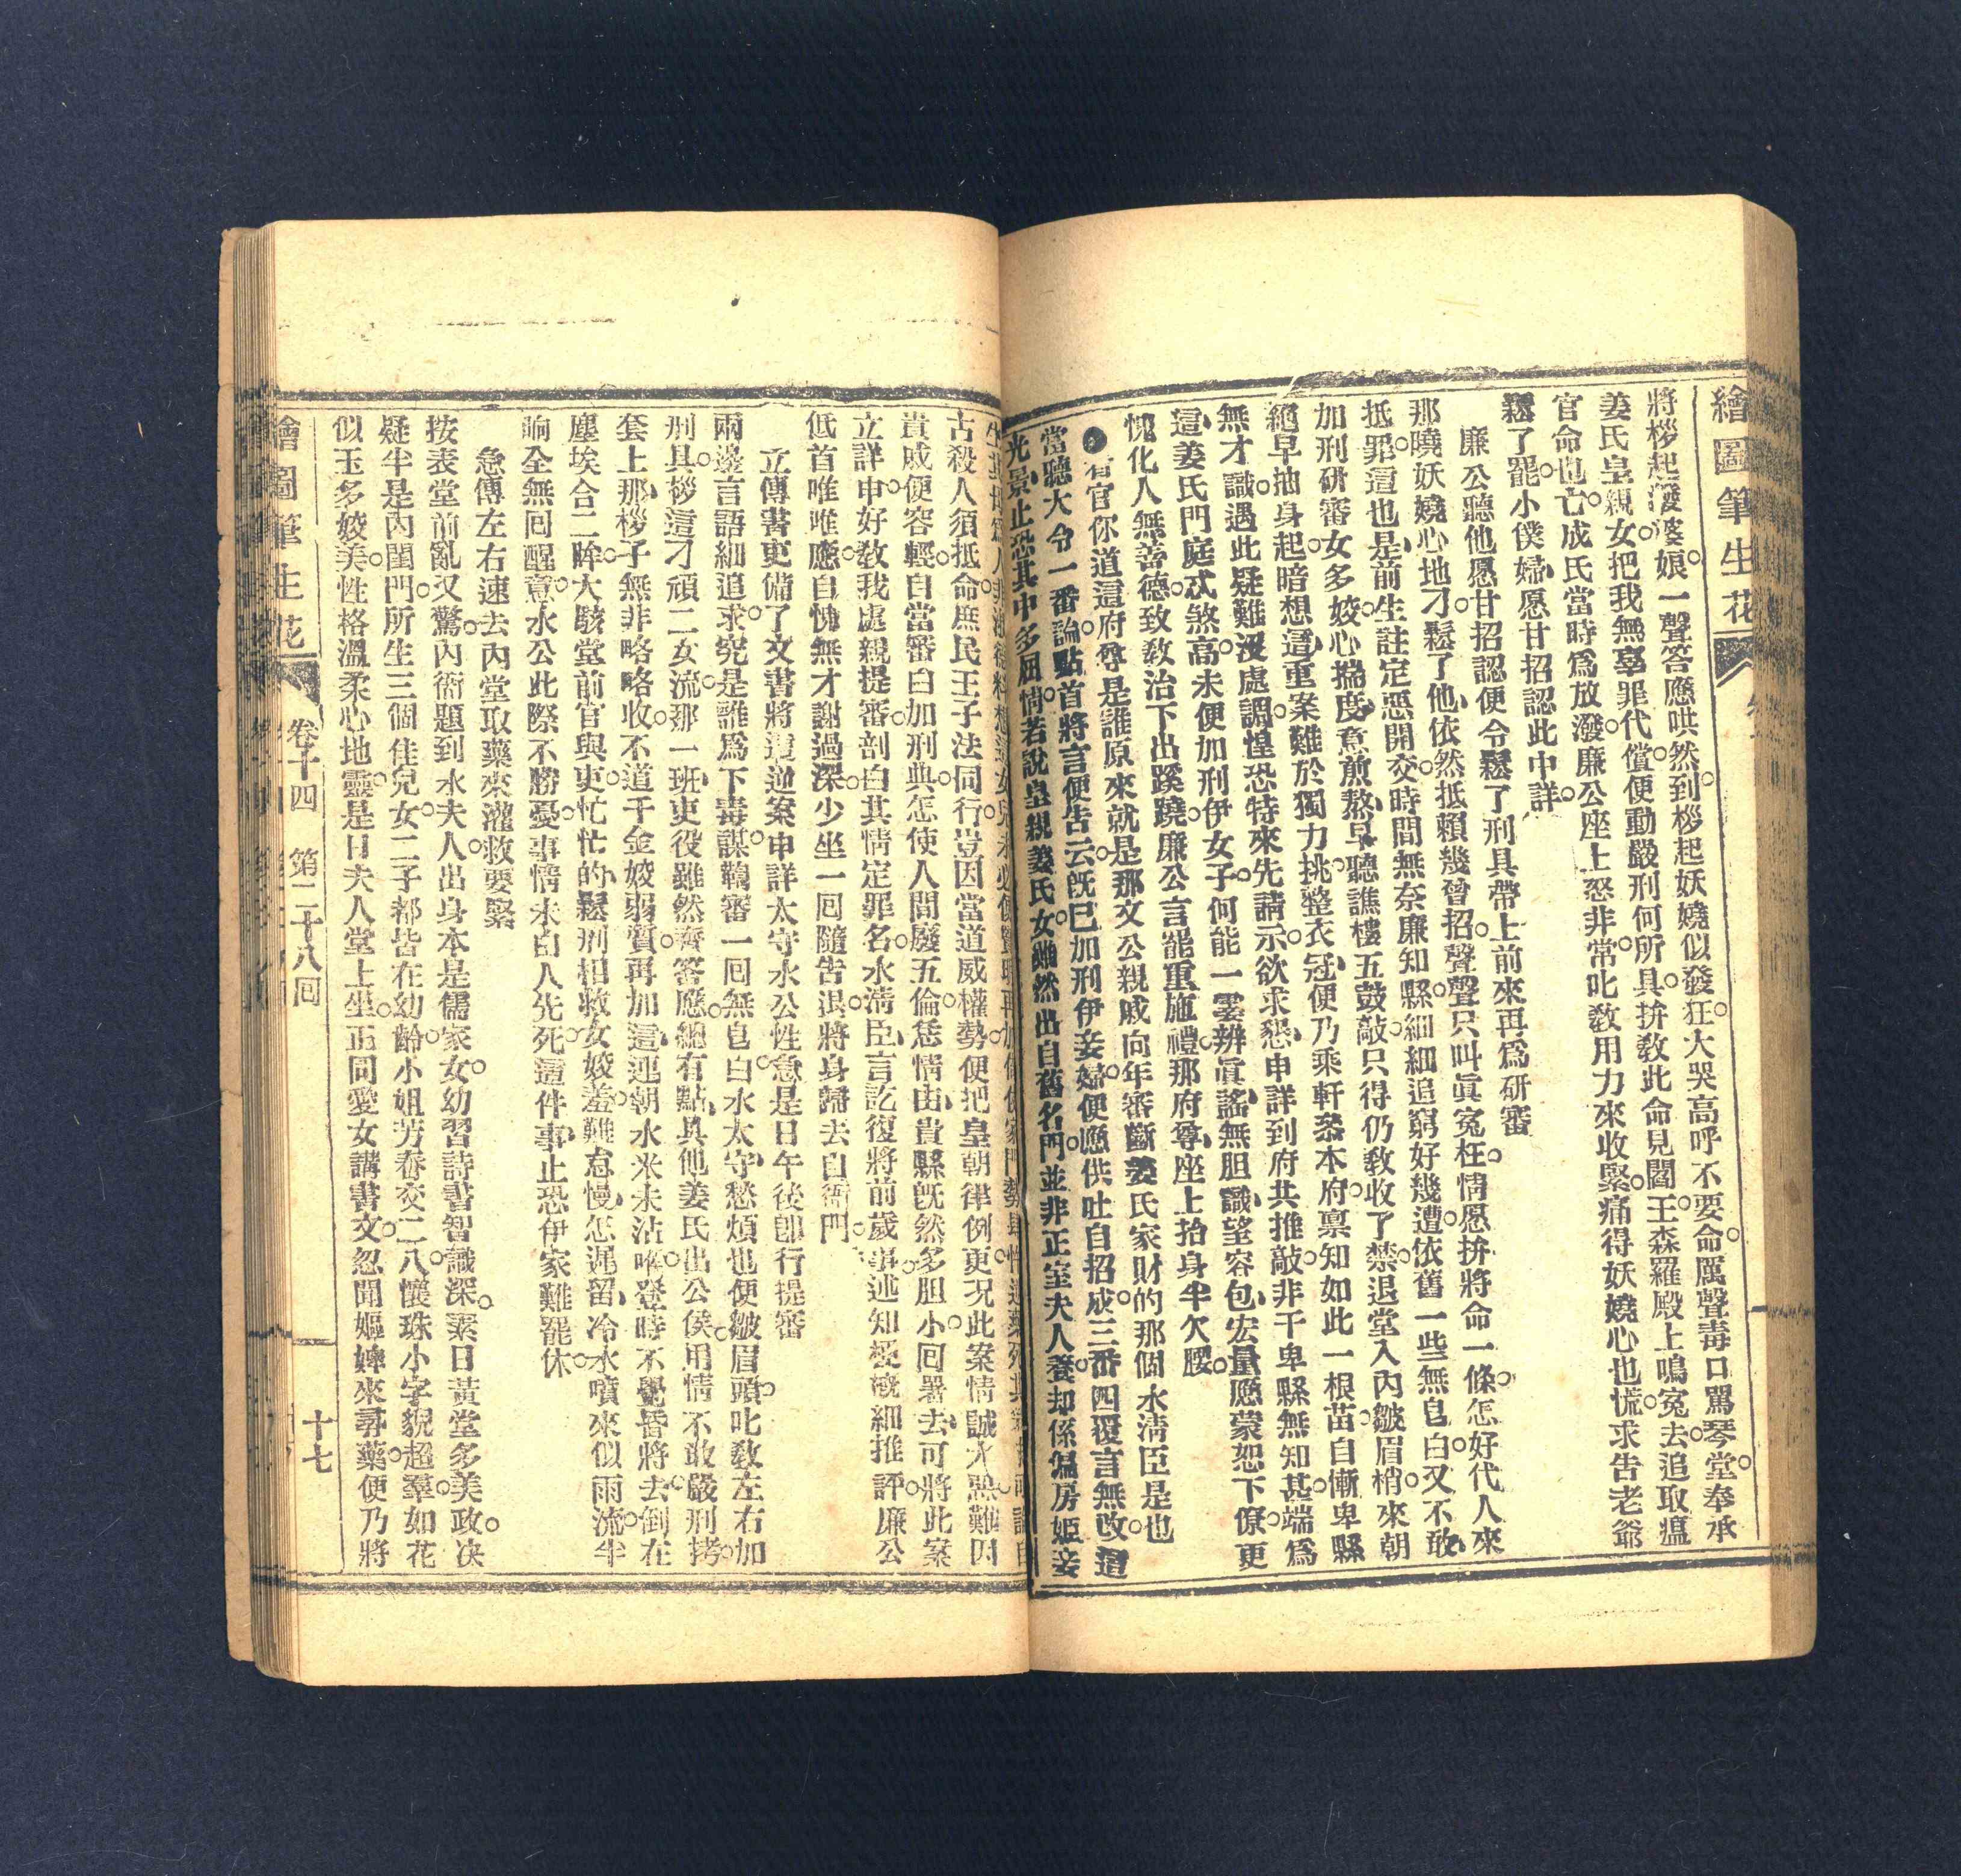 繪圖筆生花
將桚起潑婆娘一聲答應哄然到桚起妖嬈似發狂大哭高呼不要命厲聲毒口罵琴堂奉承
姜氏皇親女把我無辜罪代償便動嚴刑何所具拚敎此命見閻王森羅殿上鳴冤去追取瘟
官命也亡成氏當時爲放潑廉公座上怒非常叱敎用力來收緊痛得妖嬈心也慌求告老爺
鬆了罷小僕婦愿甘招認此中詳
廉公聽他愿甘招認便令鬆了刑具帶上前來再爲研審
那曉妖嬈心地刁鬆了他依然抵賴幾曾招聲聲只叫眞冤枉情愿拚將命一條怎好代人來
抵罪這也是前生註定惡開交時間無奈廉知縣細細追窮好幾遭依舊一些無皂白又不敢
加刑硏審女多姣心揣度意煎熬早聽譙樓五鼓敲只得仍敎收了禁退堂入內皺眉梢來朝
絕早抽身起暗想這重案難於獨力挑整衣冠便乃乘軒叅本府禀知如此一根苗自慚卑縣
無才識遇此疑難没處調惶恐特來先請示欲求懇申詳到府共推敲非干卑縣無知甚端爲
這姜氏門庭忒煞高未便加刑伊女子何能一霎辨眞謠無胆識望容包宏量應蒙恕下僚更
愧化人無善德致敎治下出蹊蹺廉公言罷重施禮那府尊座上抬身半欠腰
●看官你道這府尊是誰原來就是那文公親戚向年審斷姜氏家財的那個水淸臣是也
當聽大令一番論點首將言便告云旣已加刑伊妾婦便應供吐自招成三番四覆言無改這
光景止恐其中多屈情若說皇親姜氏女雖然出自舊名門並非正室夫人養却係偏房姬妾
古殺人須抵命庶民王子法同行豈因當道威權勢便把皇朝律例更况此案情誠水熙難因
貴戚便容輕自當審白加刑典怎使人間廢五倫恁情由貴縣旣然多胆小回署去可將此案
立詳申好敎我處親提審剖白其情定罪名水淸臣言訖復將前歲事述知極破細推評廉公
低首唯唯應自愧無才謝過深少坐一回隨告退將身歸去自衙門
立傳書吏備了文書將這逆案申詳太守水公性急是日午後卽行提審
兩邊言語細追求究是誰爲下毒謀鞫審一回無皂白水太守愁煩也便皺眉頭叱敎左右加
刑具桚這刁頑二女流那一班吏役雖然齊答應總有點具他姜氏出公侯用情不敢嚴刑拷
套上那桚子無非略略收不道千金姣弱質再加這連朝水米未沾喉登時不覺昏將去倒在
塵埃合二眸大駭堂前官與吏忙忙的鬆刑相救女姣羞難怠慢怎遲留冷水噴來似雨流半
晌全無回醒意水公此際不勝憂事情未白人先死這件事止恐伊家難罷休
急傳左右速去內堂取藥來灌救要緊
按表堂前亂又驚內衙題到水夫人出身本是儒家女幼習詩書智識深素日黃堂多美政决
疑半是內閨門所生三個佳兒女二子都皆在幼齡小姐芳春交二八懷珠小字貌超羣如花
似玉多姣美性格溫柔心地靈是日夫人堂上坐正同愛女講書文忽聞嫗婢來尋藥便乃將
繪圖筆生花
卷十四 第二十八回
十七